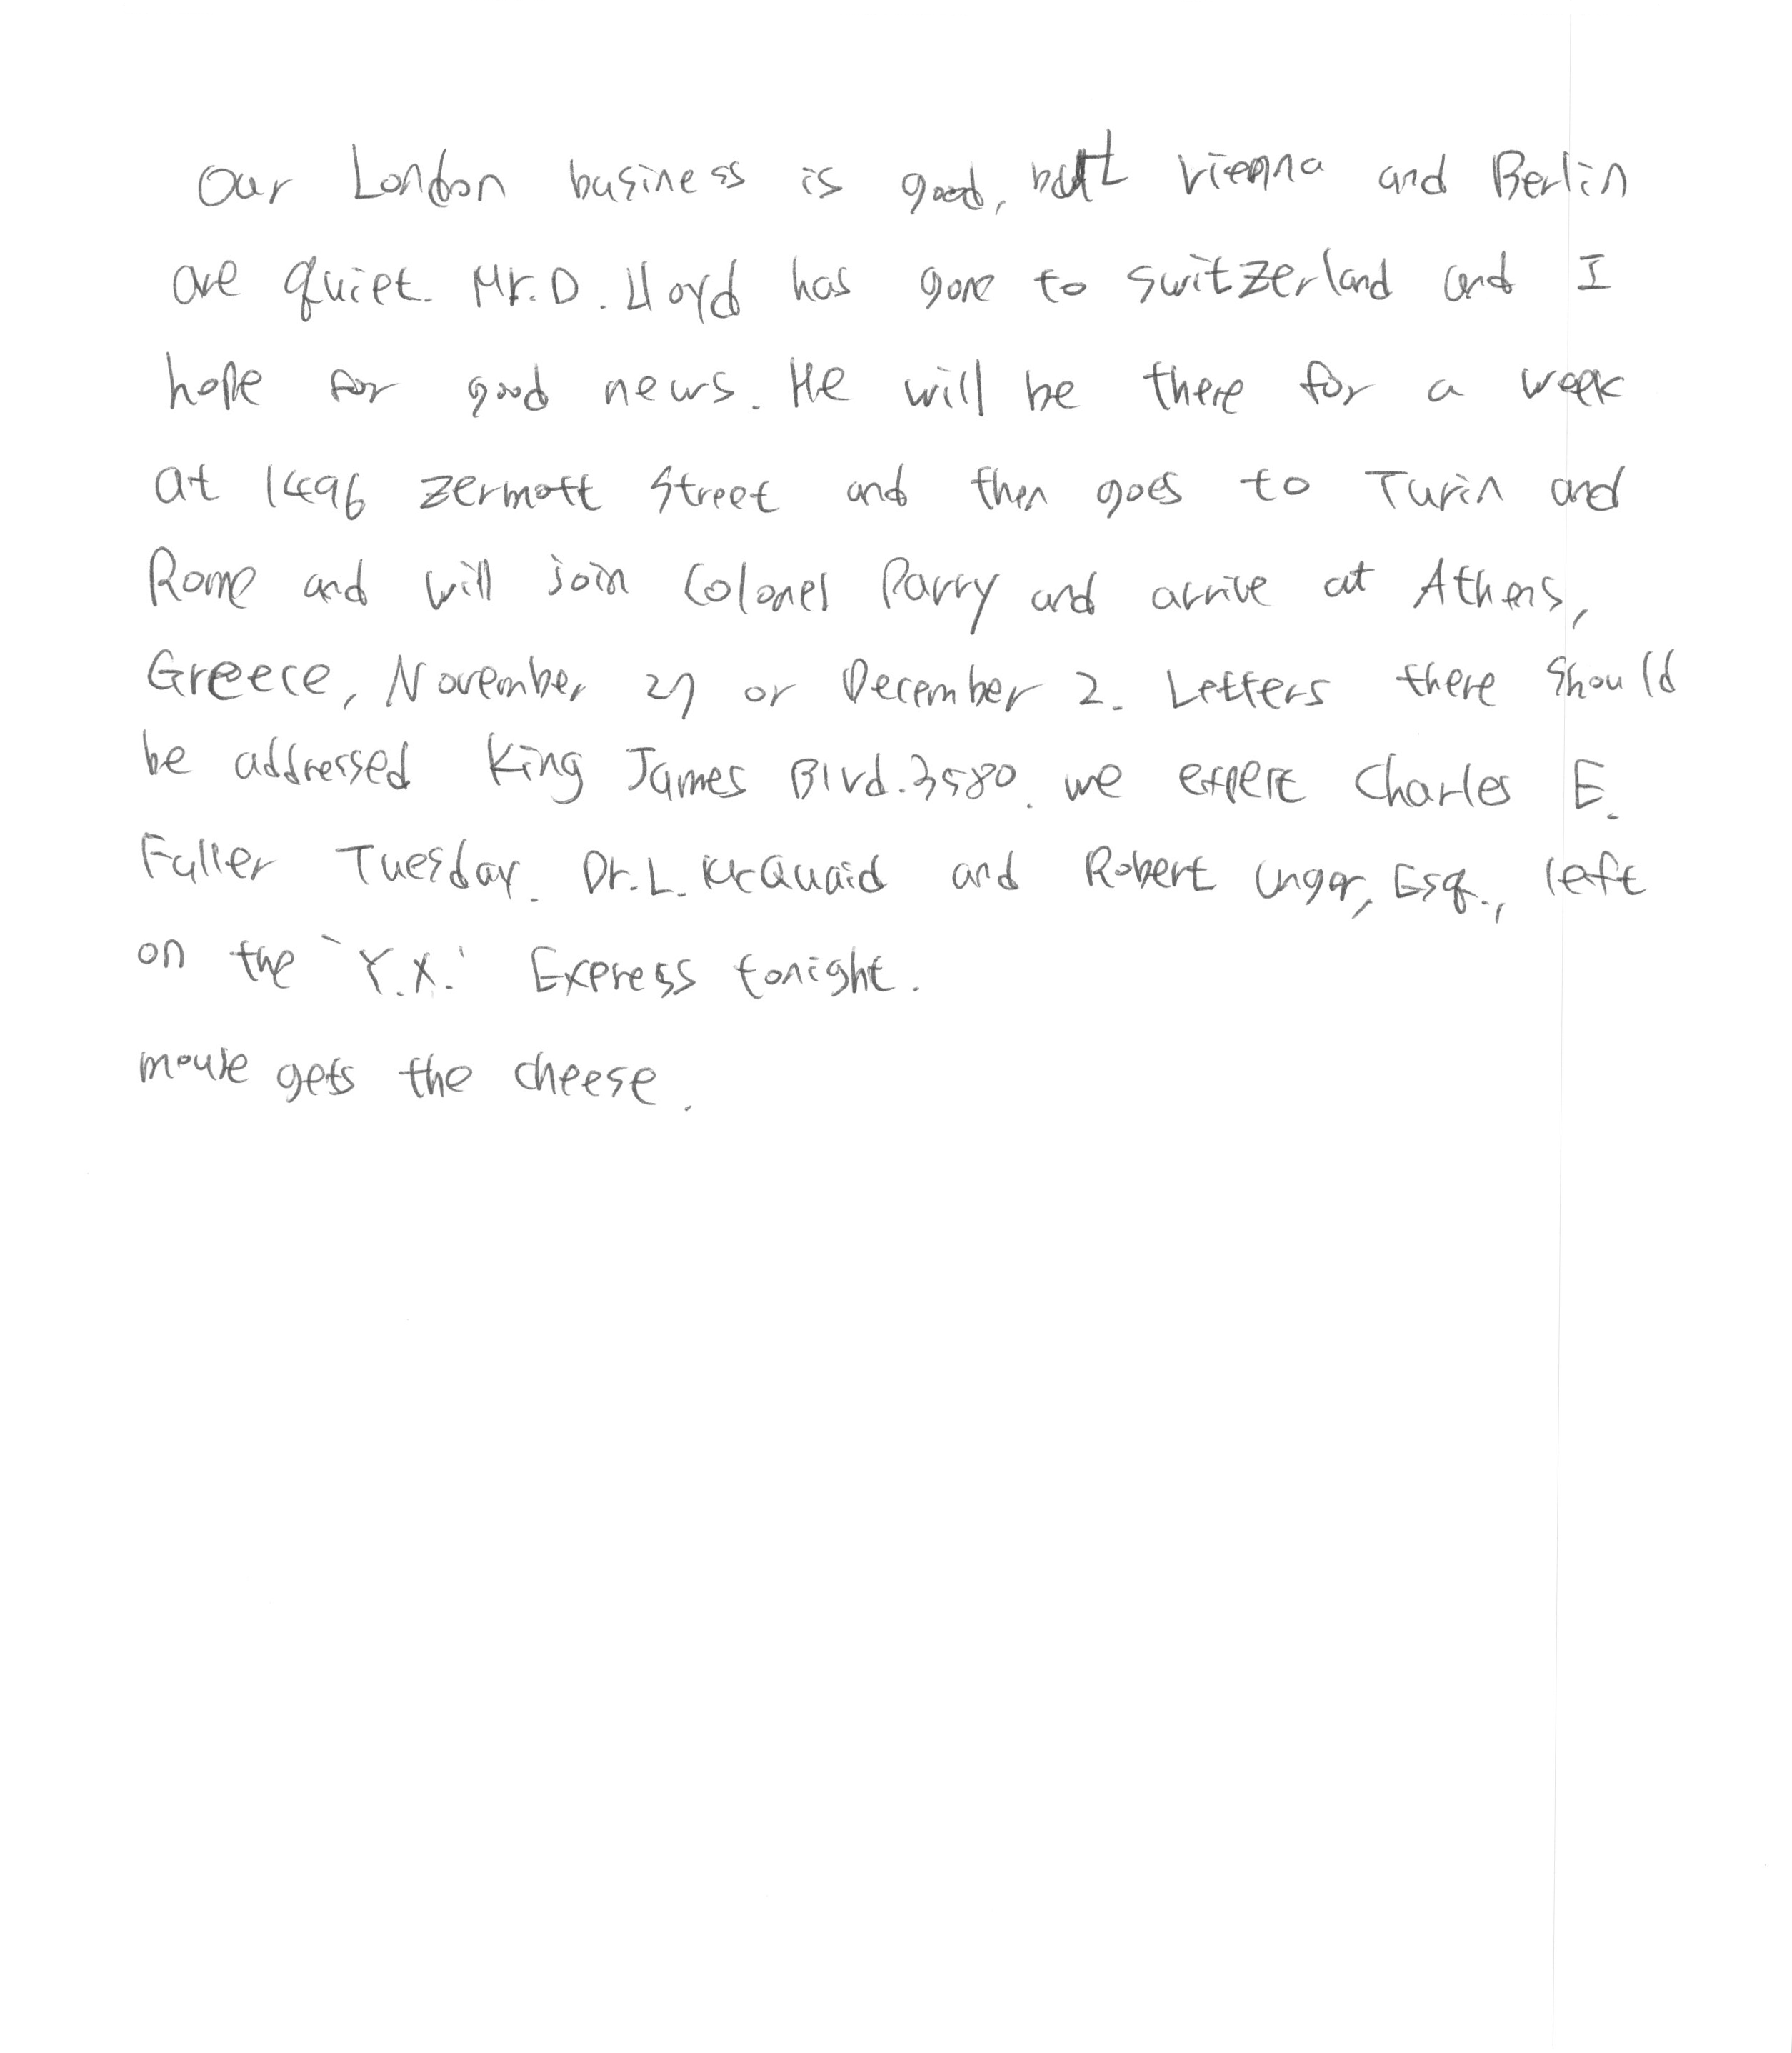 Our London business is good, but Vienna and Berlin
are quiet. Mr. D. Lloyd has gone to Switzerland and I
hope for good news. He will be there for a week
at 1496 Zermott Street and then goes to Turin and
Rome and will join Colonel Parry and arrive at Athens,
Greece, November 27 or December 2. Letters there should
be addressed King James Blvd. 3580. we expect Charles E.
Fuller Tuesday. Dr. L. McQuaid and Robert Unger, Esq., left
on the "Y.X." Express tonight.
mouse gets the cheese.